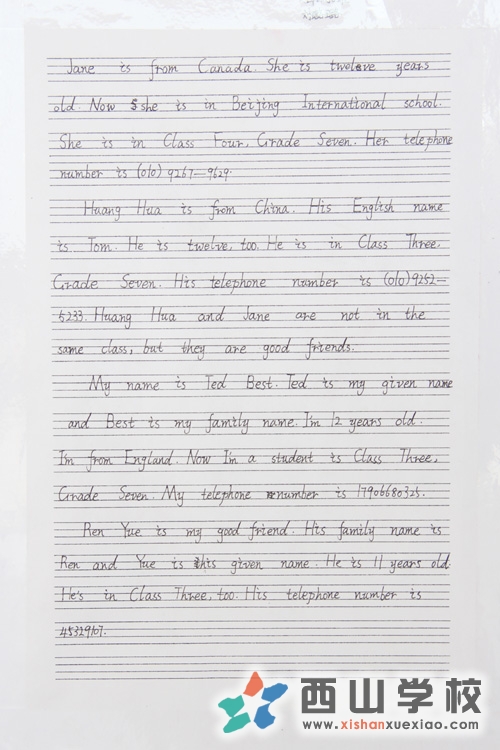 Jane is from Canada. She is twelve years
old. Now she is in Beijing International school.
She is in Class Four, Grade Seven. Her telephone
number is (010) 9267—9629.
Huang Hua is from China. His English name
is Tom. He is twelve, too. He is in Class Three,
Grade Seven. His telephone number is (010) 9252—
5233. Huang Hua and Jane are not in the
same class, but they are good friends.
My name is Ted Best. Ted is my given name
and Best is my family name. I'm 12 years old.
I'm from England. Now I'm a student is Class Three,
Grade Seven. My telephone number is 17906680325.
Ren Yue is my good friend. His family name is
Ren and Yue is his given name. He is 11 years old.
He's in Class Three, too. His telephone number is
45329107.
西山学校
www.xishanxuexiao.com